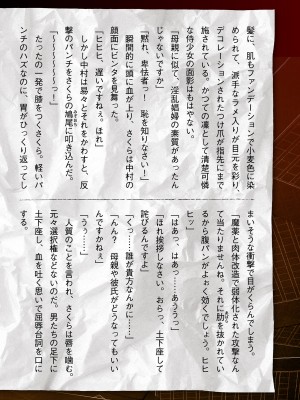 髪に、肌もファンデーションで小麦色に染
められて、派手なラメ入りが目元を彩り、
デコレーションされたつけ爪が指先にまで
施されている。かつての凛として清楚可憐
な侍少女の面影はもはやない。
「母親に似て、淫乱娼婦の素質があったん
じゃないですか」
「黙れ、卑怯者っ! 恥を知りなさい!」
瞬間的に頭に血が上り、さくらは中村の
顔面にビンタを見舞った。
「ヒヒヒ、遅いですねぇ。ほれ」
しかし中村は易々とそれをかわすと、反
撃のパンチをさくらの鳩尾に叩き込んだ。
「～～～～～～～っ!」
たったの一発で膝をつくさくら。軽いパ
ンチのハズなのに、胃がひっくり返ってし
まいそうな衝撃で目がくらんでしまう。
「魔薬と肉体改造で弱体化された攻撃なん
て当たりませんね。それに肋を抜かれてい
るから腹パンがよぉく効くでしょう。ヒヒ
ヒッ」
「はあっ、はあっ……あううっ」
「ほれ挨拶しなさい。おらっ、土下座して
詫びるんですよ」
「くっ……誰が貴方なんかに……」
「んん? 母親や彼氏がどうなってもいい
んですかねぇ」
「うぅ……」
人質のことを言われ、さくらは唇を噛む。
元々選択権などないのだ。男たちの足下に
土下座し、血を吐く思いで屈辱台詞を口に
する。